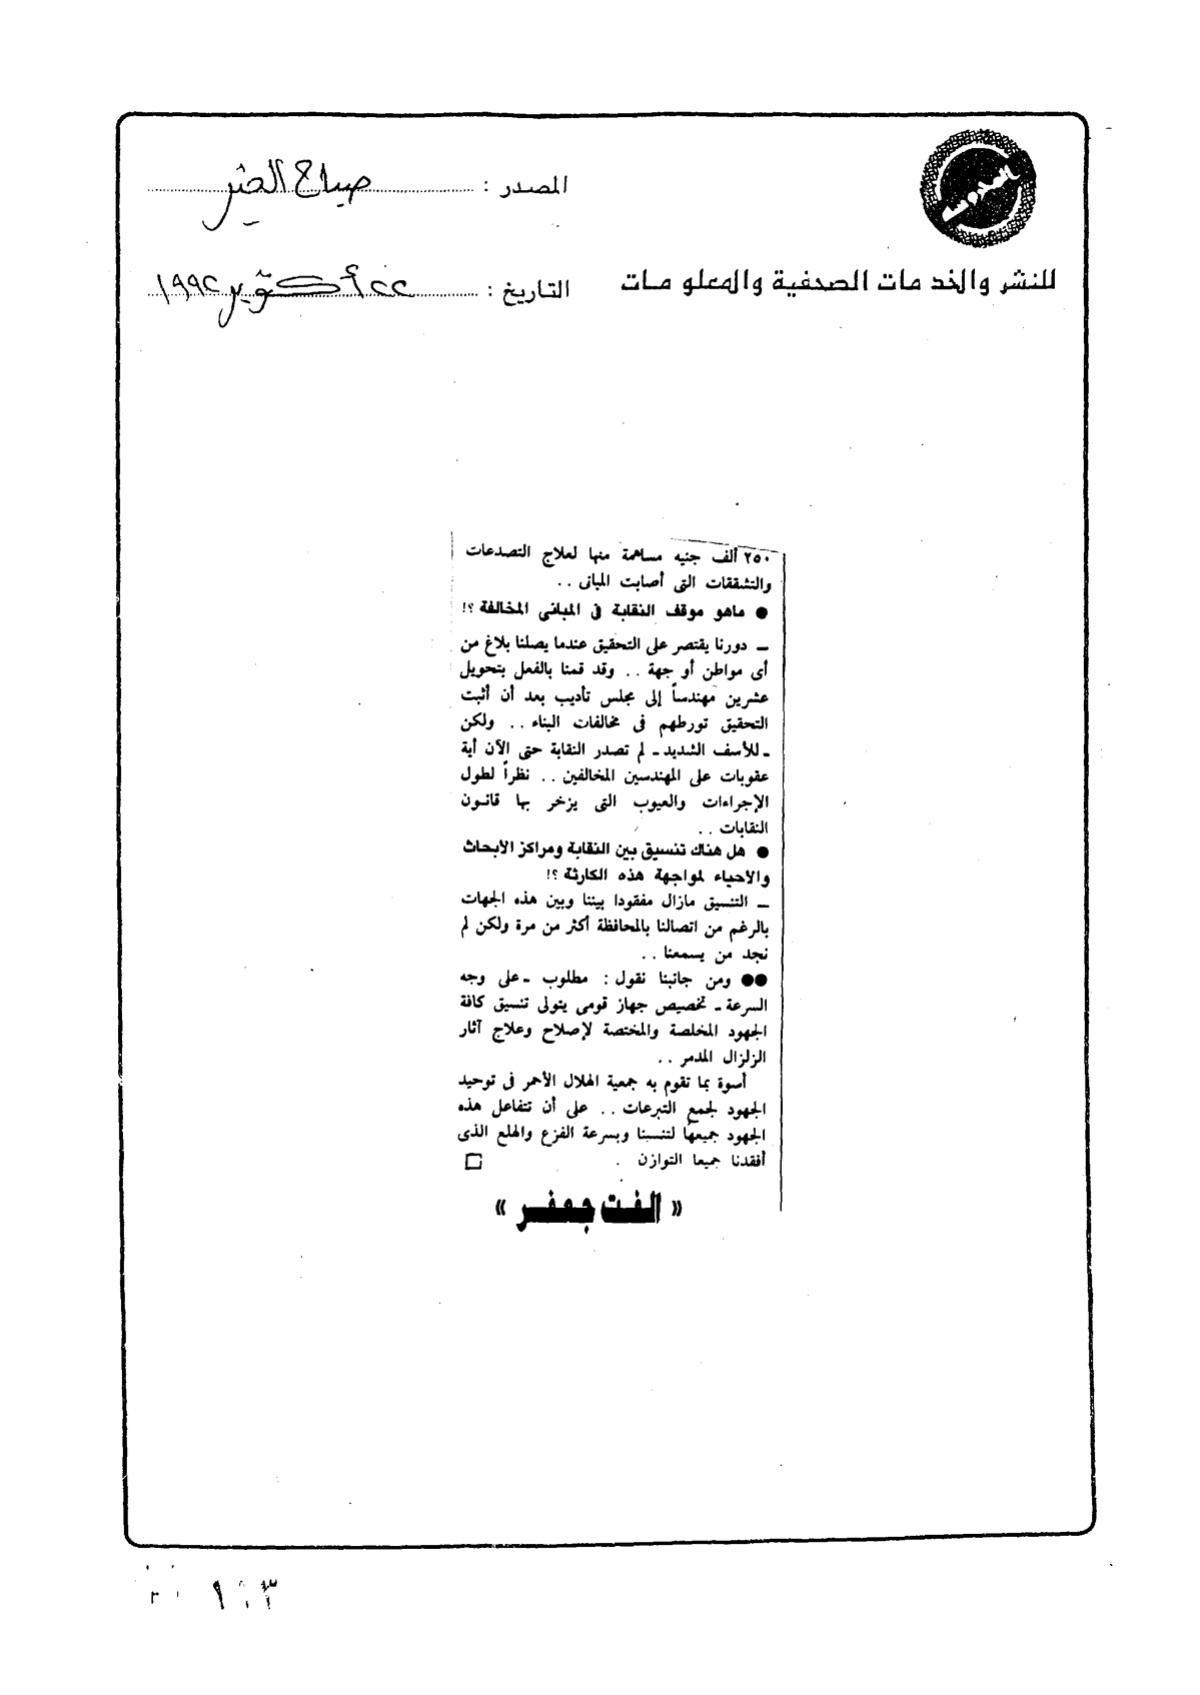 المصدر : صباح الخير
للنشر والخدمات الصحفية والمعلومات
التاريخ : ٢٢ أكتوبر ١٩٩٢
٢٥٠ ألف جنيه مساهمة منها لعلاج التصدعات
والتشققات التى أصابت المبانى ..
● ماهو موقف النقابة فى المبانى المخالفة ؟!
ــ دورنا يقتصر على التحقيق عندما يصلنا بلاغ من
أى مواطن أو جهة .. وقد قمنا بالفعل بتحويل
عشرين مهندساً إلى مجلس تأديب بعد أن أثبت
التحقيق تورطهم فى مخالفات البناء .. ولكن
ـ للأسف الشديد ـ لم تصدر النقابة حتى الآن أية
عقوبات على المهندسين المخالفين .. نظراً لطول
الإجراءات والعيوب التى يزخر بها قانون
النقابات ..
● هل هناك تنسيق بين النقابة ومراكز الأبحاث
والاحياء لمواجهة هذه الكارثة ؟!
ــ التنسيق مازال مفقودا بيننا وبين هذه الجهات
بالرغم من اتصالنا بالمحافظة أكثر من مرة ولكن لم
نجد من يسمعنا ..
●● ومن جانبنا نقول : مطلوب ـ على وجه
السرعة ـ تخصيص جهاز قومى يتولى تنسيق كافة
الجهود المخلصة والمختصة لإصلاح وعلاج آثار
الزلزال المدمر ..
أسوة بما تقوم به جمعية الهلال الأحمر فى توحيد
الجهود لجمع التبرعات .. على أن تتفاعل هذه
الجهود جميعها لتنسينا وبسرعة الفزع والهلع الذى
أفقدنا جميعا التوازن .
« الفت جعفر »